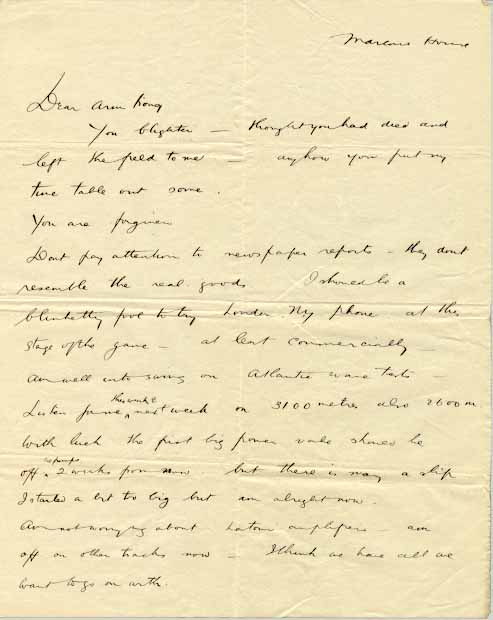 Marconi House
Dear Armstrong
You blighter — thought you had died and
left the field to me — anyhow you put my
time table out some.
You are forgiven
Dont pay attention to newspaper reports — they dont
resemble the real goods I should be a
blinketty fool to try London N.Y phone at this
stage of the game — at least commercially —
Am well into swing on Atlantic wave tests —
Listen this week & next week on 3100 metres also 2600 m.
With luck the first big power valve should be
off the pumps 2 weeks from now. but there is many a slip
I started a bit too big but am alright now.
Am not worrying about amplifiers — am
off on other tracks now — I think we have all we
want to go on with.